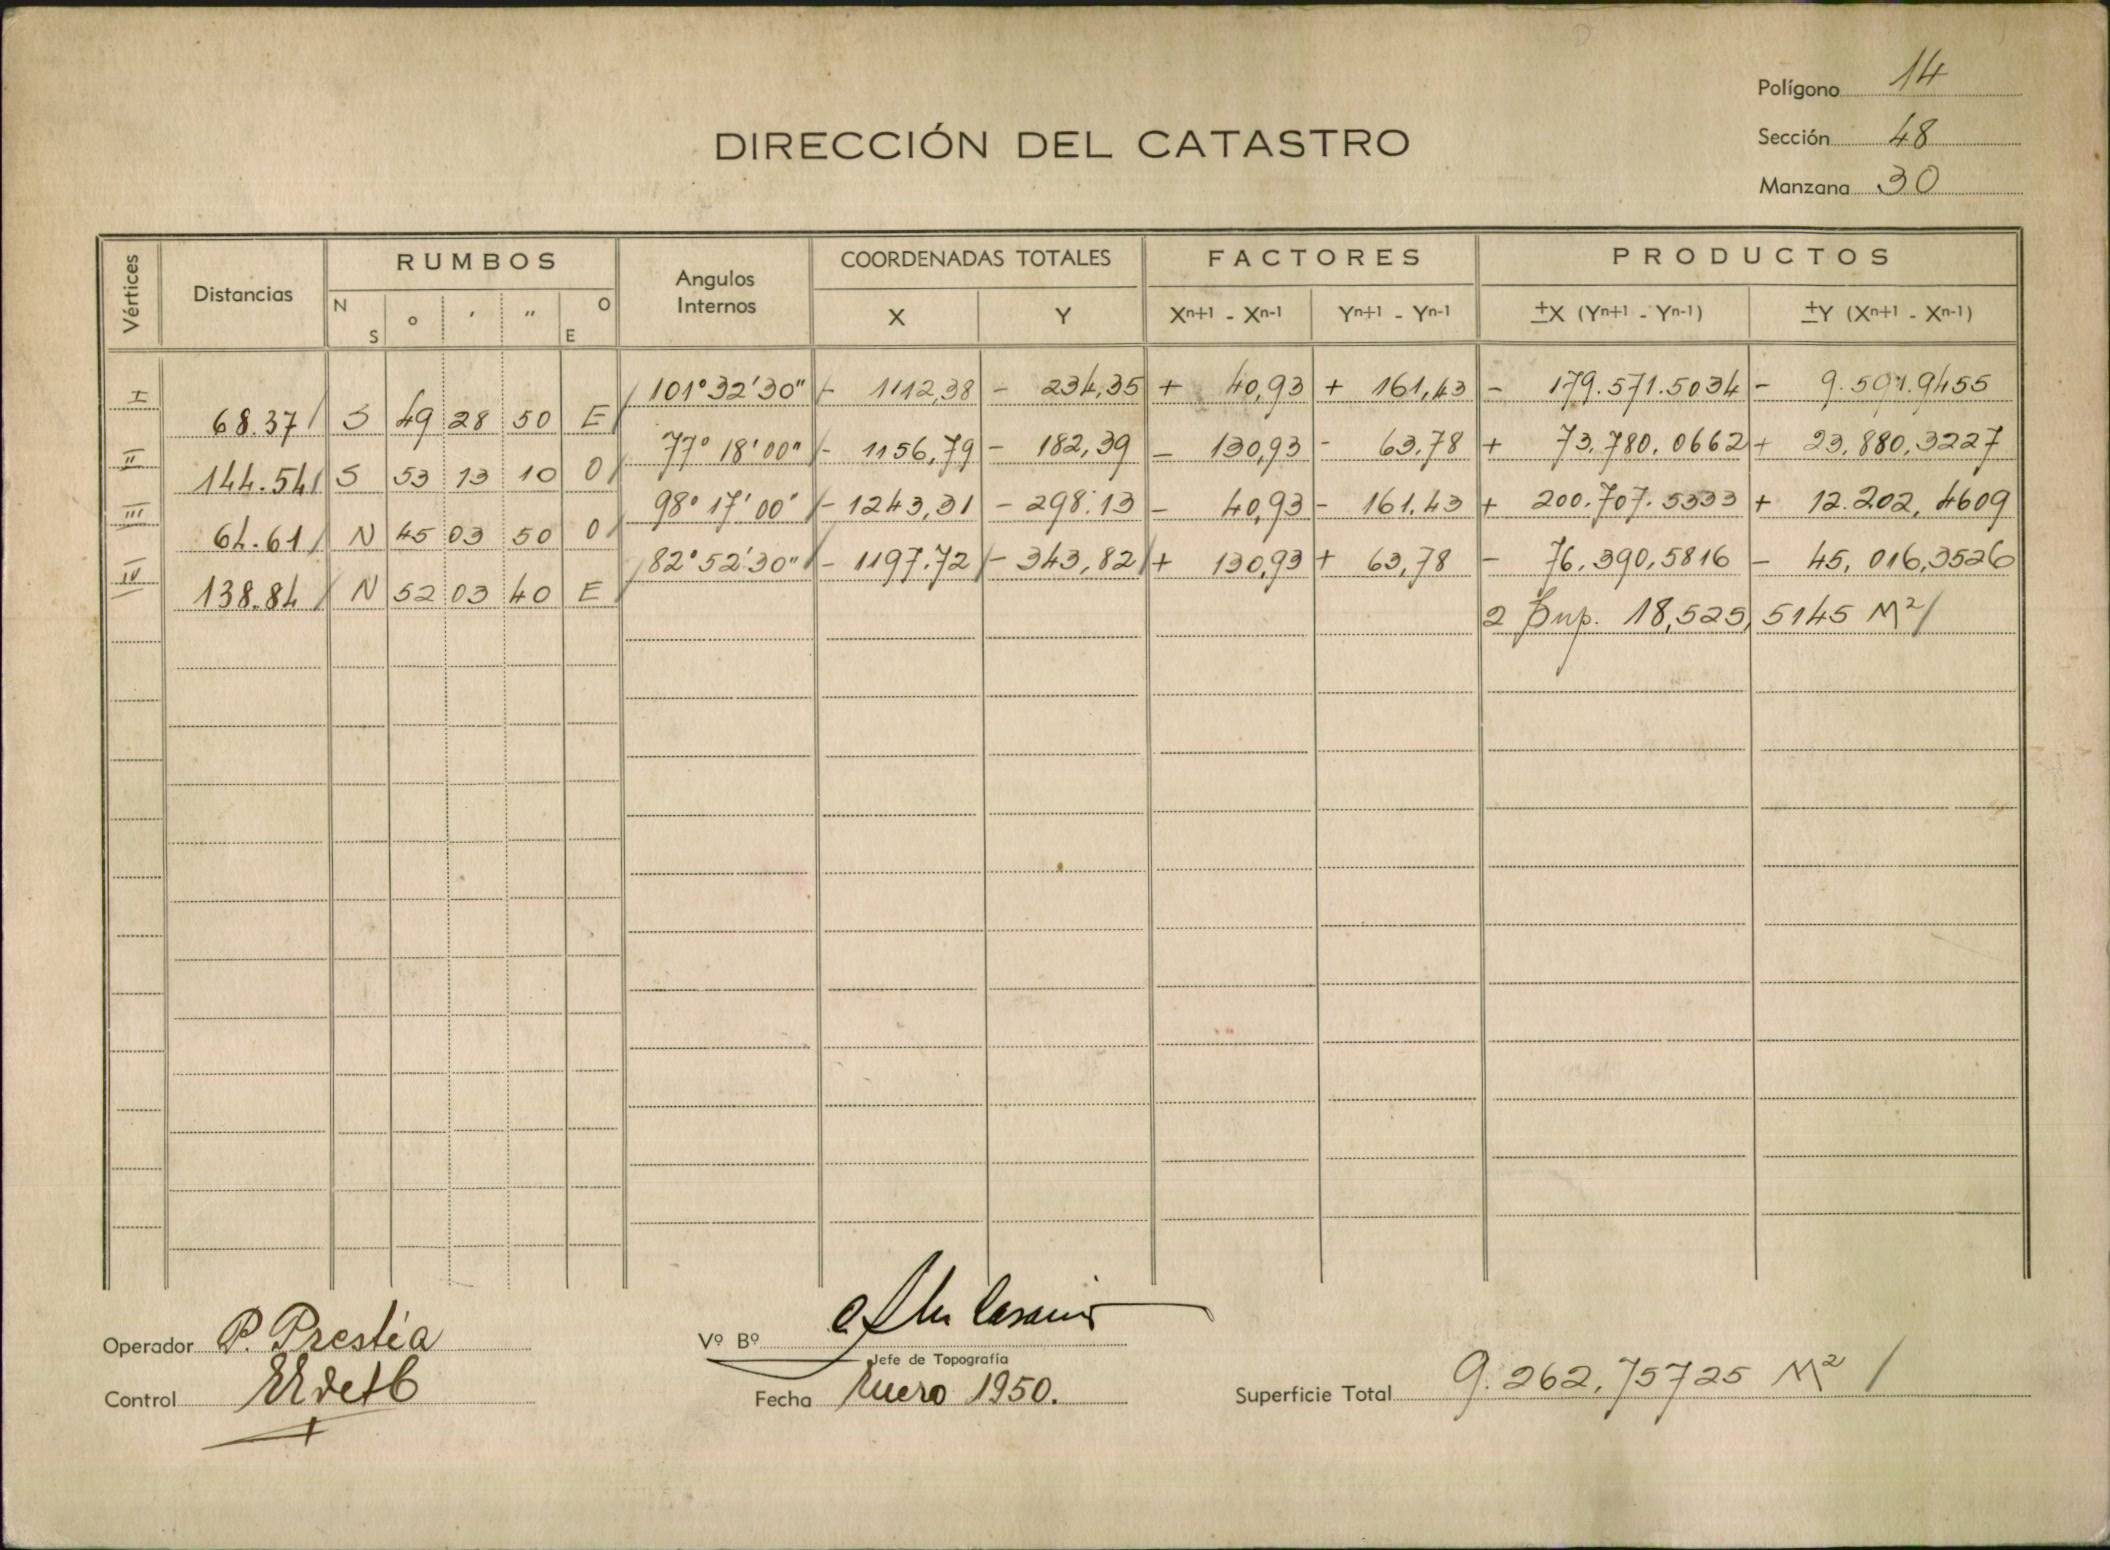 Polígono 14
DIRECCIÓN DEL CATASTRO
Sección 48
Manzana 30
Vértices Distancias RUMBOS Angulos Internos COORDENADAS TOTALES FACTORES PRODUCTOS
N S o ' " O E X Y Xn+1 - Xn-1 Yn+1 - Yn-1 ±X (Yn+1 - Yn-1) ±Y (Xn+1 - Xn-1)
I 101°32'30" - 1112,38 - 234,35 + 40,93 + 161,43 - 179.571.5034 - 9.591.9455
68.37 S 49 28 50 E
II 77° 18'00" - 1156,79 - 182,39 - 130,93 - 63.78 + 73.780.0662 + 23.880.3227
144.54 S 53 13 10 O
III 98° 17' 00" - 1243,31 - 298.13 - 40,93 - 161.43 + 200.707.5333 + 12.202.4609
64.61 N 45 03 50 O
IV 82°52'30" - 1197.72 - 343,82 + 130,93 + 63,78 - 76.390,5816 - 45,016,3526
138.84 N 52 03 40 E
2 Sup. 18,525,5145 M²
Operador P. Prestia
Vº Bº
Jefe de Topografía
Control
Fecha Enero 1950.
Superficie Total 9.262,75725 M²